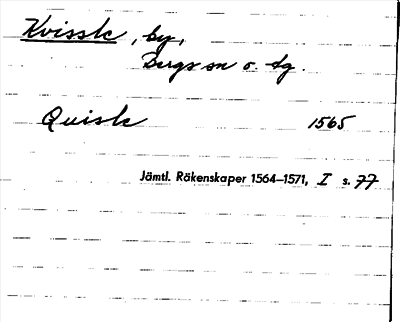 Kvissle, by,
Bergs sn o. tg.
Quisle 1565
Jämtl. Räkenskaper 1564–1571, I s. 77